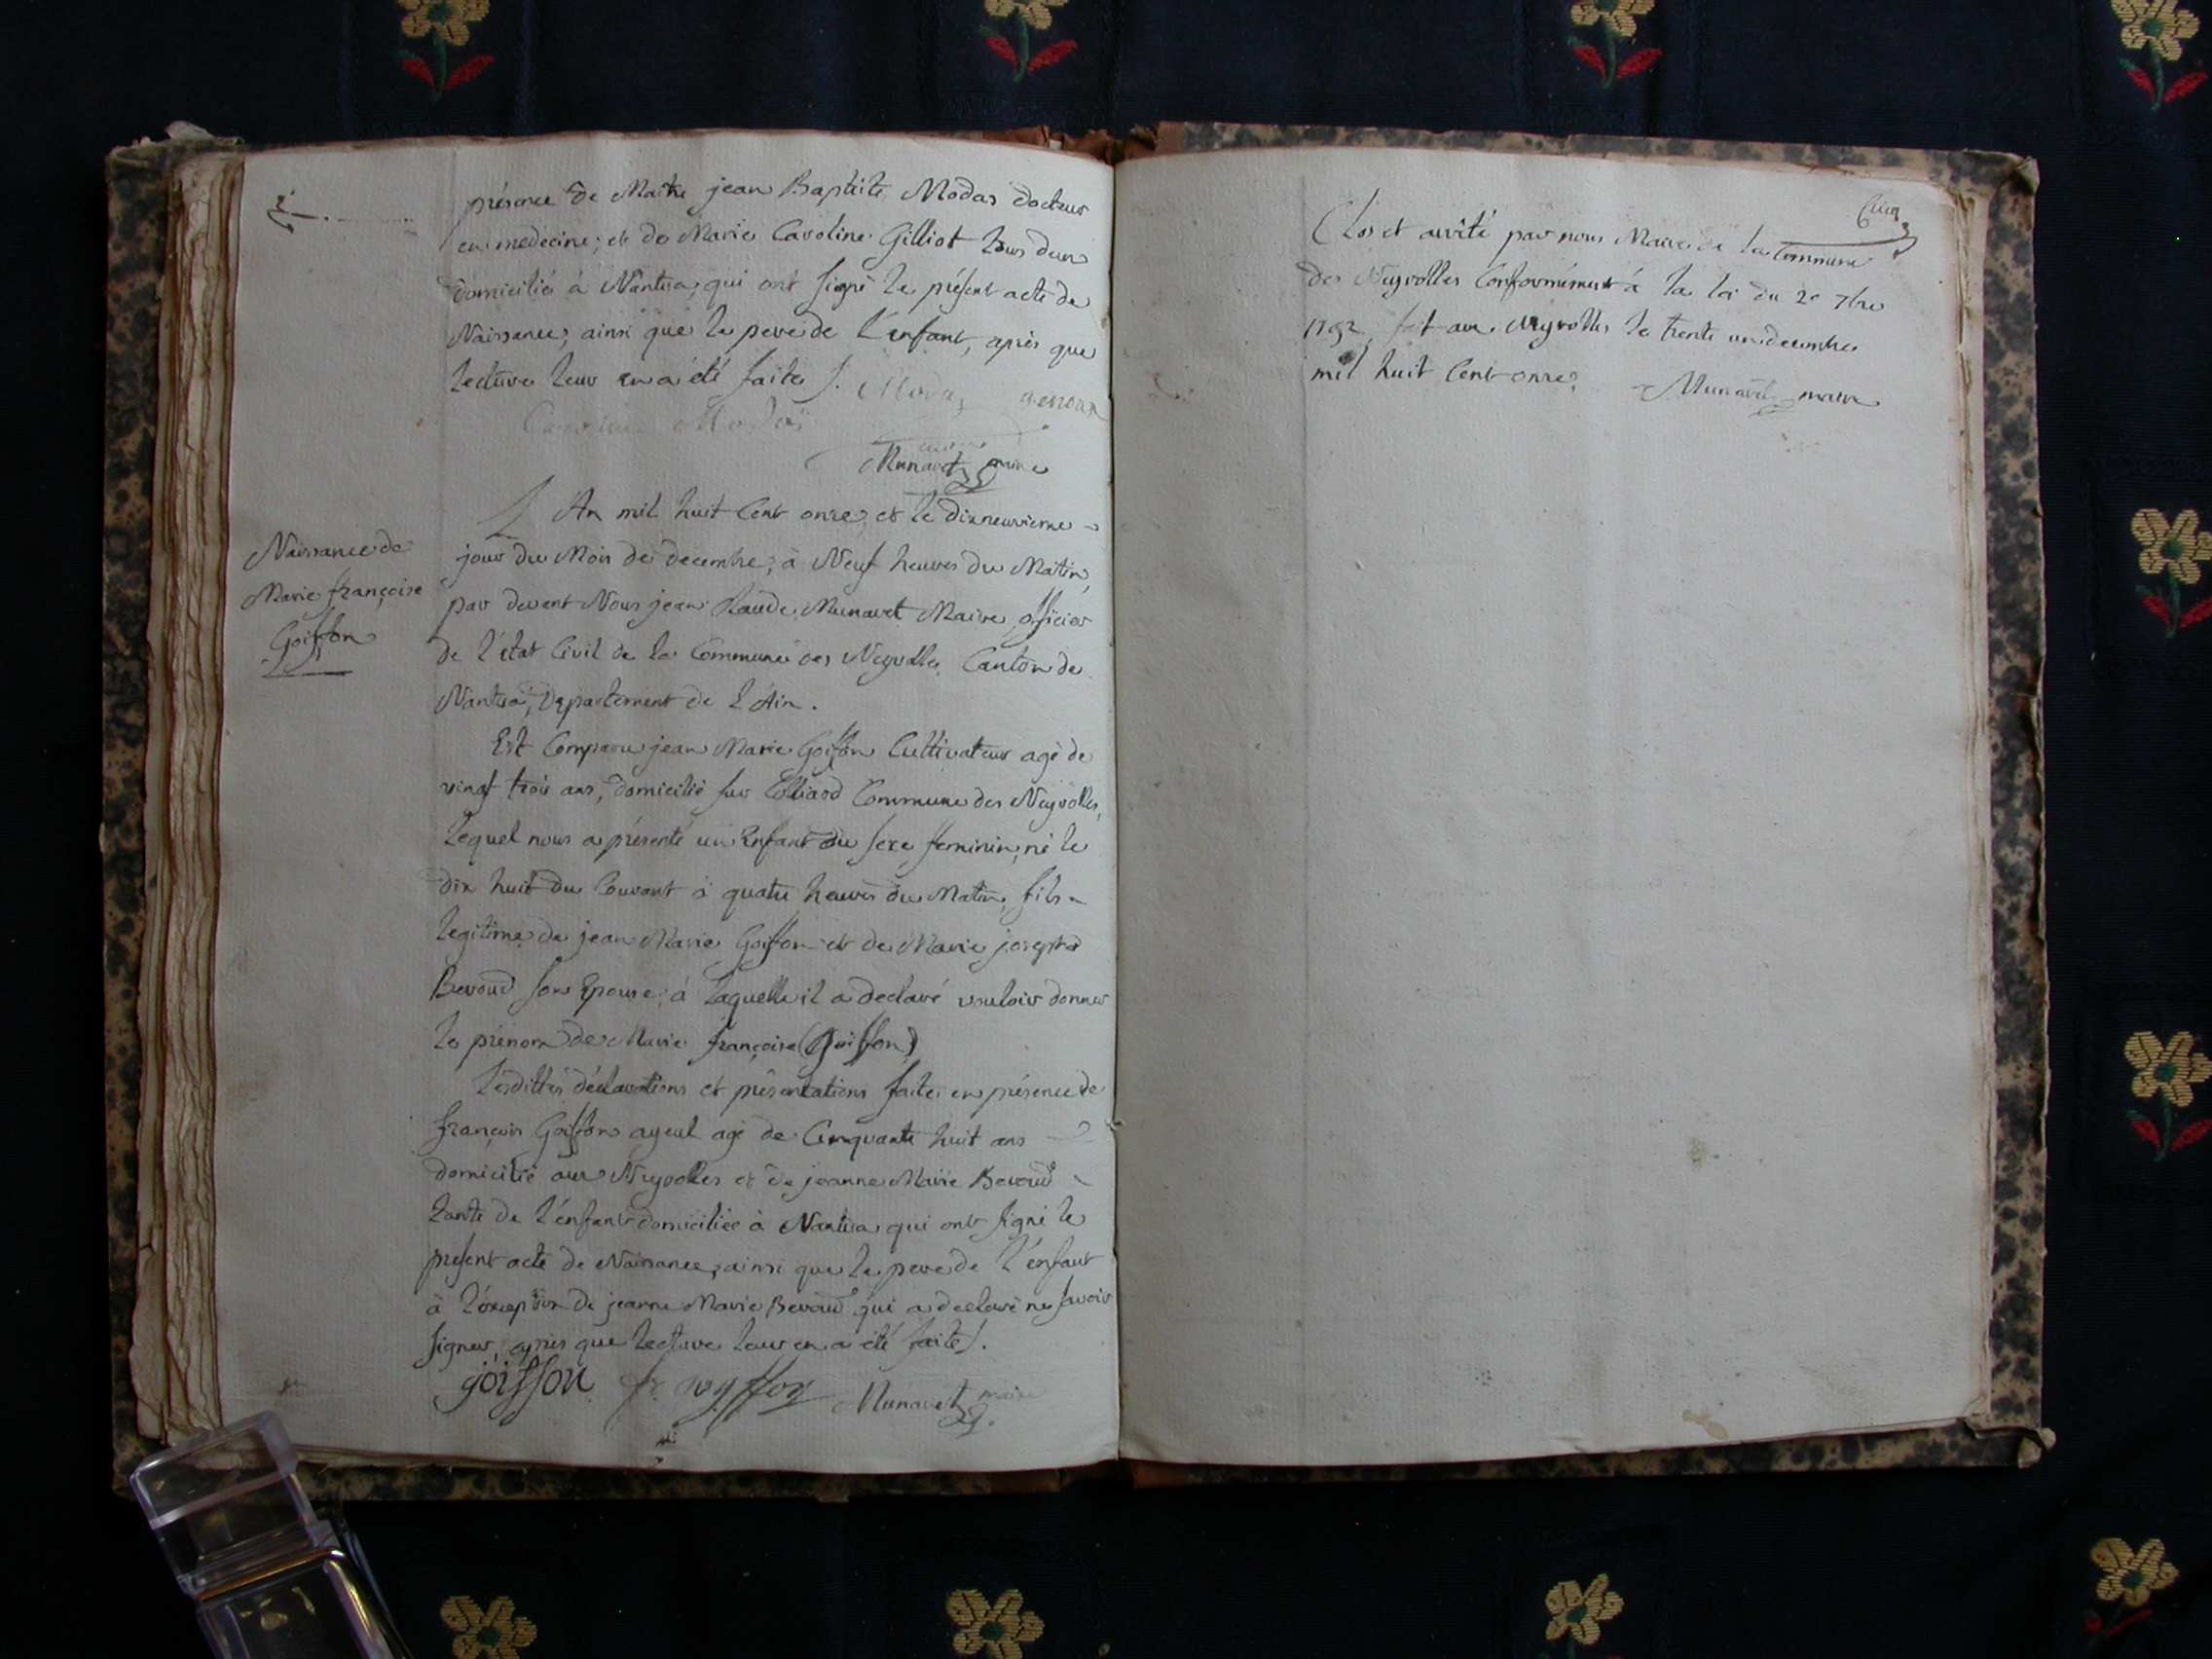 présence de Maitre jean Baptiste Modas docteur
en medecine; et de Marie Caroline Gilliot tous deux
domiciliés à Nantua, qui ont signé le présent acte de
Naissance, ainsi que le pere de l'enfant, après que
lecture leur en a été faite /.
Caroline Modas
Munavet maire
Naissance de
Marie françoise
Goiffon
L'An mil huit Cent onze, et le dixneuvieme
jour du Mois de decembre, à Neuf heures du Matin,
par devant Nous jean Claude Munavet Maire, officier
de l'état Civil de la Commune des Neyrolles, Canton de
Nantua, Departement de l'Ain.
Est Comparu jean Marie Goiffon Cultivateur agé de
vingt trois ans, domicilié sur Colliard Commune des Neyrolles,
Lequel nous a présenté un Enfant du sexe feminin, né le
dix huit du Courant à quatre heures du Matin, fils
legitime de jean Marie Goiffon et de Marie josephte
Beroud son Epouse; à laquelle il a declaré vouloir donner
le prénom de Marie françoise (Goiffon)
Lesdittes déclarations et présentations faites en présence de
françois Goiffon ayeul agé de Cinquante huit ans
domicilié aux Neyrolles et de jeanne Marie Beroud
tante de l'énfant domiciliée à Nantua qui ont signé le
présent acte de Naissance, ainsi que le pere de l'énfant
à l'éxception de jeanne Marie Beroud qui a declaré ne savoir
signer, après que lecture leur en a été faite /.
goiffon Munavet maire
Clos et arrêté par nous Maire de la Commune
des Neyrolles Conformément à la loi du 20 7bre
1792, fait aux Neyrolles le trente un decembre
mil huit Cent onze, Munavet maire